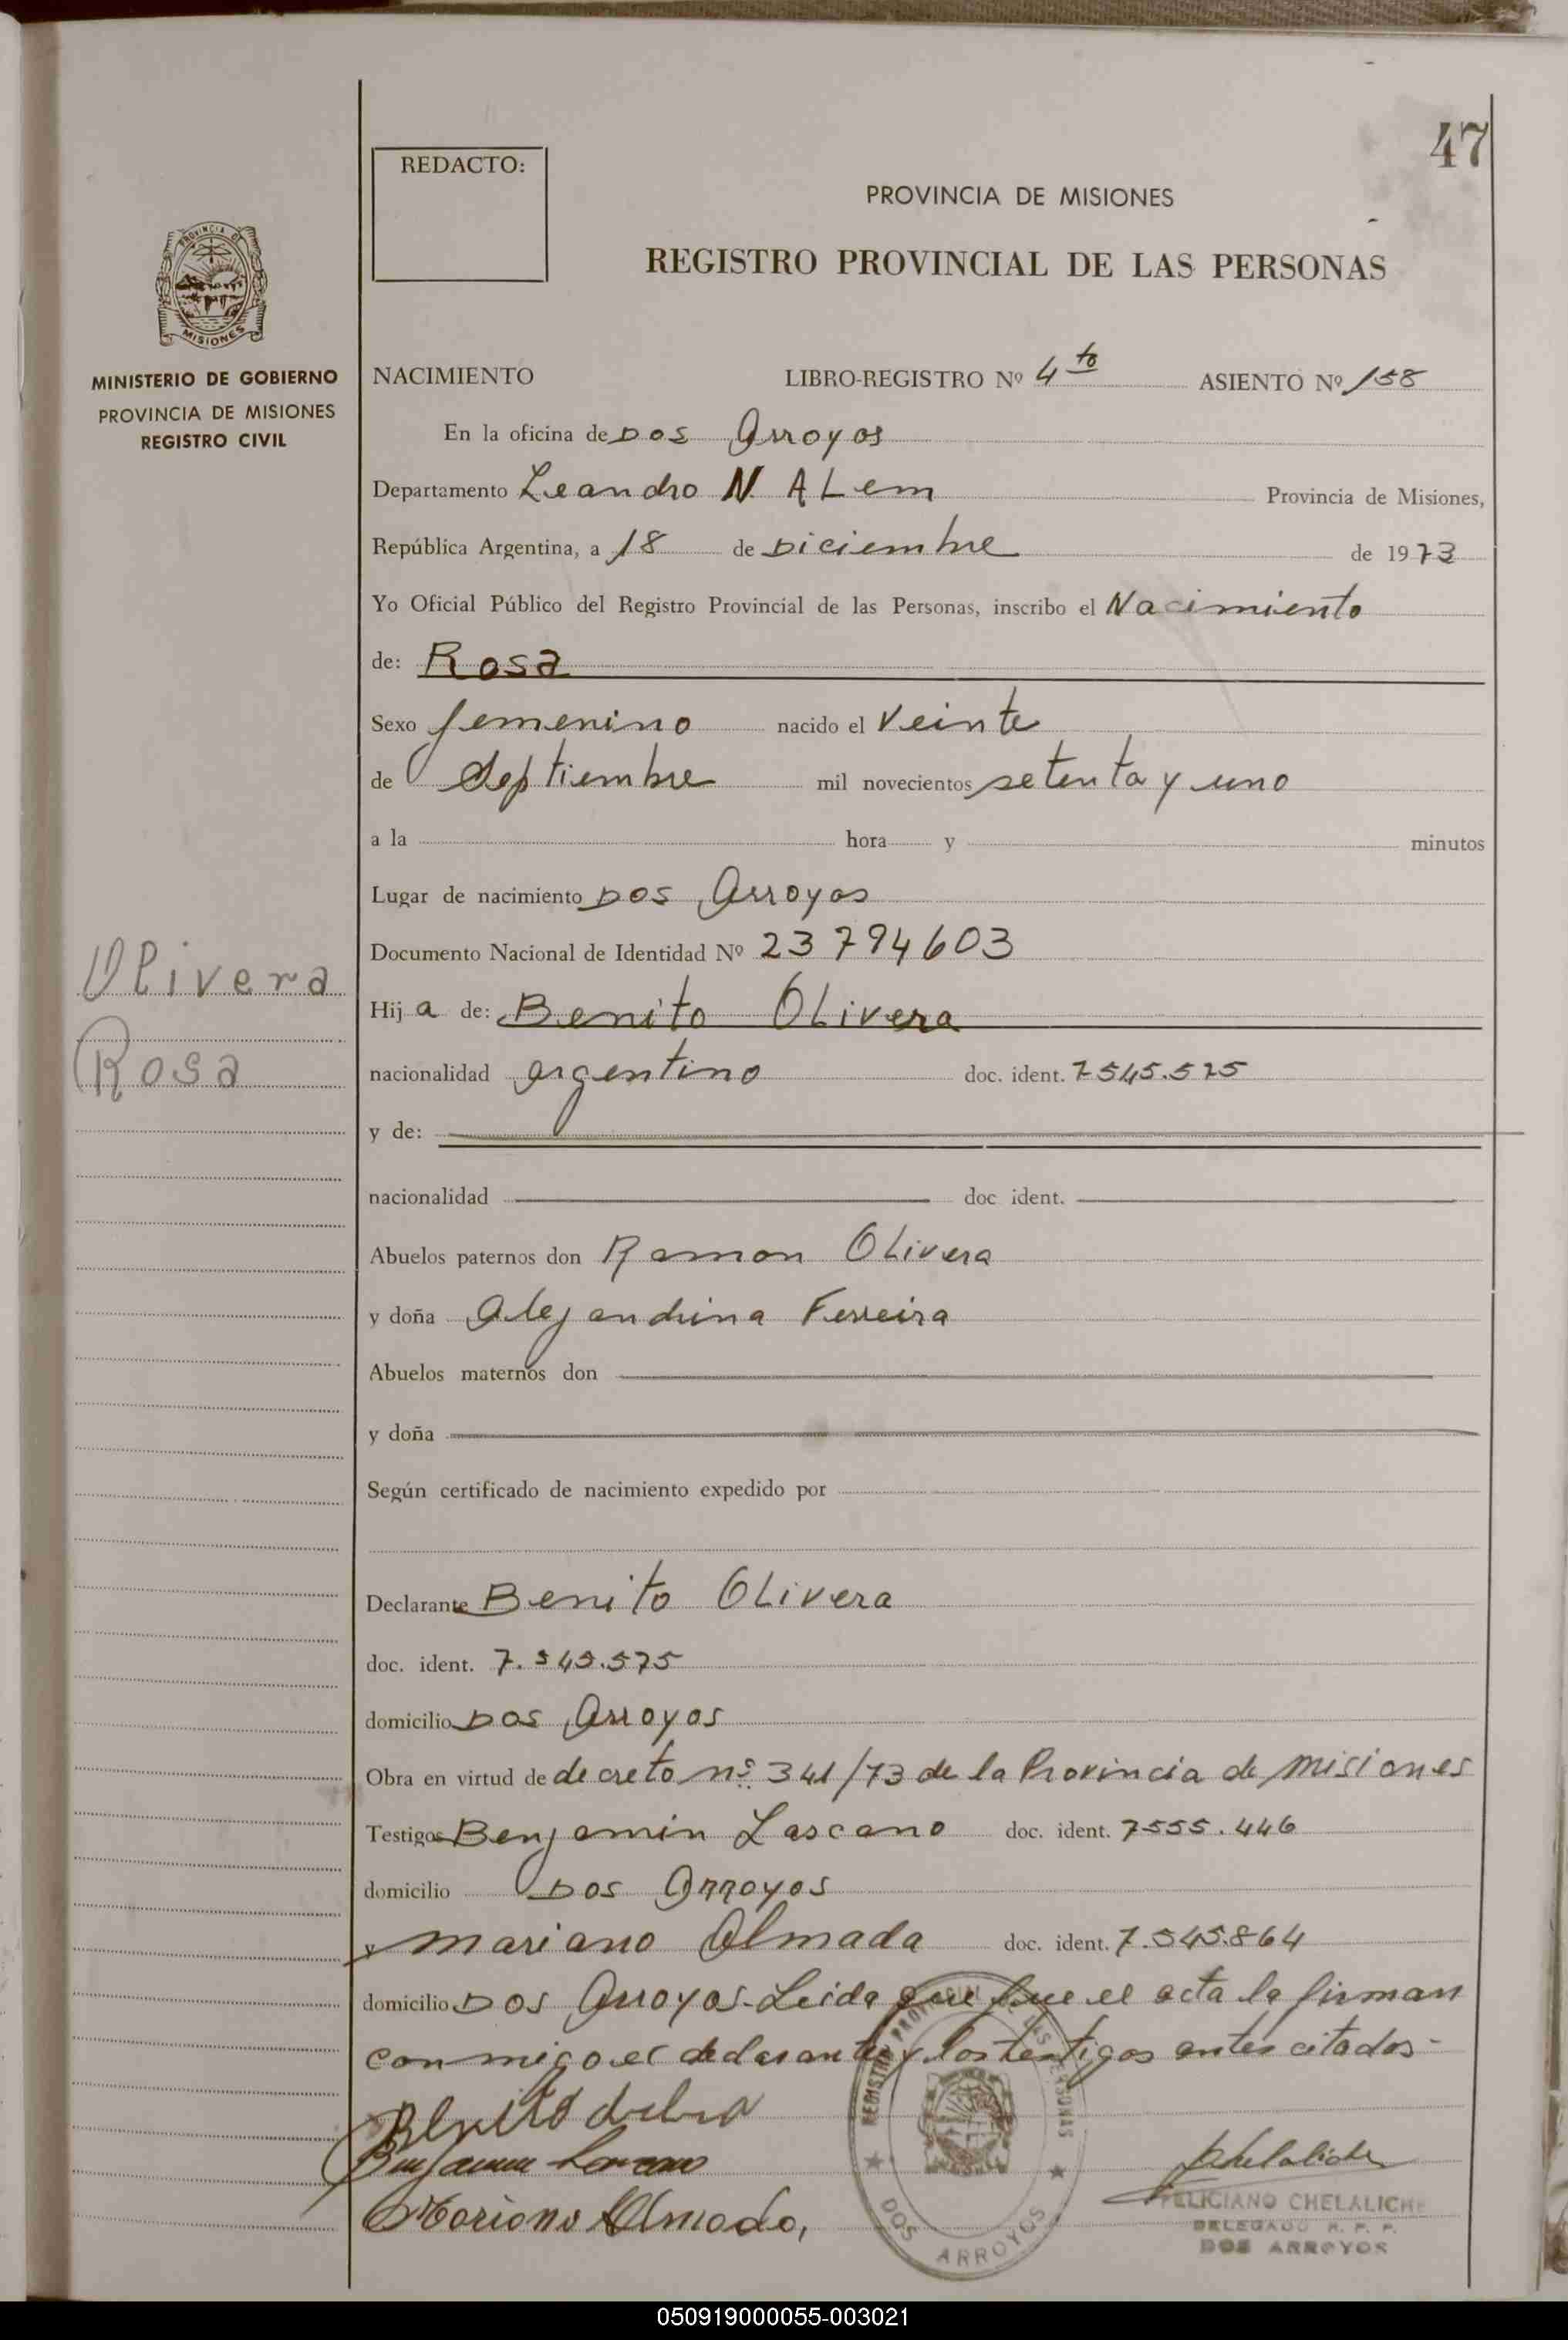 47
REDACTO:
PROVINCIA DE MISIONES
REGISTRO PROVINCIAL DE LAS PERSONAS
PROVINCIA DE
MISIONES
MINISTERIO DE GOBIERNO
PROVINCIA DE MISIONES
REGISTRO CIVIL
NACIMIENTO LIBRO-REGISTRO Nº 4to ASIENTO Nº 158
En la oficina de Dos Arroyos
Departamento Leandro N. ALem Provincia de Misiones,
República Argentina, a 18 de Diciembre de 1973
Yo Oficial Público del Registro Provincial de las Personas, inscribo el Nacimiento
de: Rosa
Sexo femenino nacido el Veinte
de Septiembre mil novecientos setenta y uno
a la hora y minutos
Lugar de nacimiento Dos Arroyos
Documento Nacional de Identidad Nº 23794603
Olivera
Rosa
Hija de: Benito OLivera
nacionalidad argentino doc. ident. 7545.575
y de:
nacionalidad doc ident.
Abuelos paternos don Ramon OLivera
y doña Alejandrina Ferreira
Abuelos maternos don
y doña
Según certificado de nacimiento expedido por
Declarante Benito OLivera
doc. ident. 7.545.575
domicilio Dos Arroyos
Obra en virtud de decreto nº 341/73 de la Provincia de Misiones
Testigos Benjamin Lascano doc. ident. 7555.446
domicilio Dos Arroyos
y Mariano Olmada doc. ident. 7.545.864
domicilio Dos Arroyos. Leida que fue el acta la firman
conmigo el declarante y los testigos antes citados-
Benito
Benjamin
Mariano Olmado,
REGISTRO PROVINCIAL DE LAS PERSONAS
DOS ARROYOS
FELICIANO CHELALICHE
DELEGADO R. P. P.
DOS ARROYOS
050919000055-003021